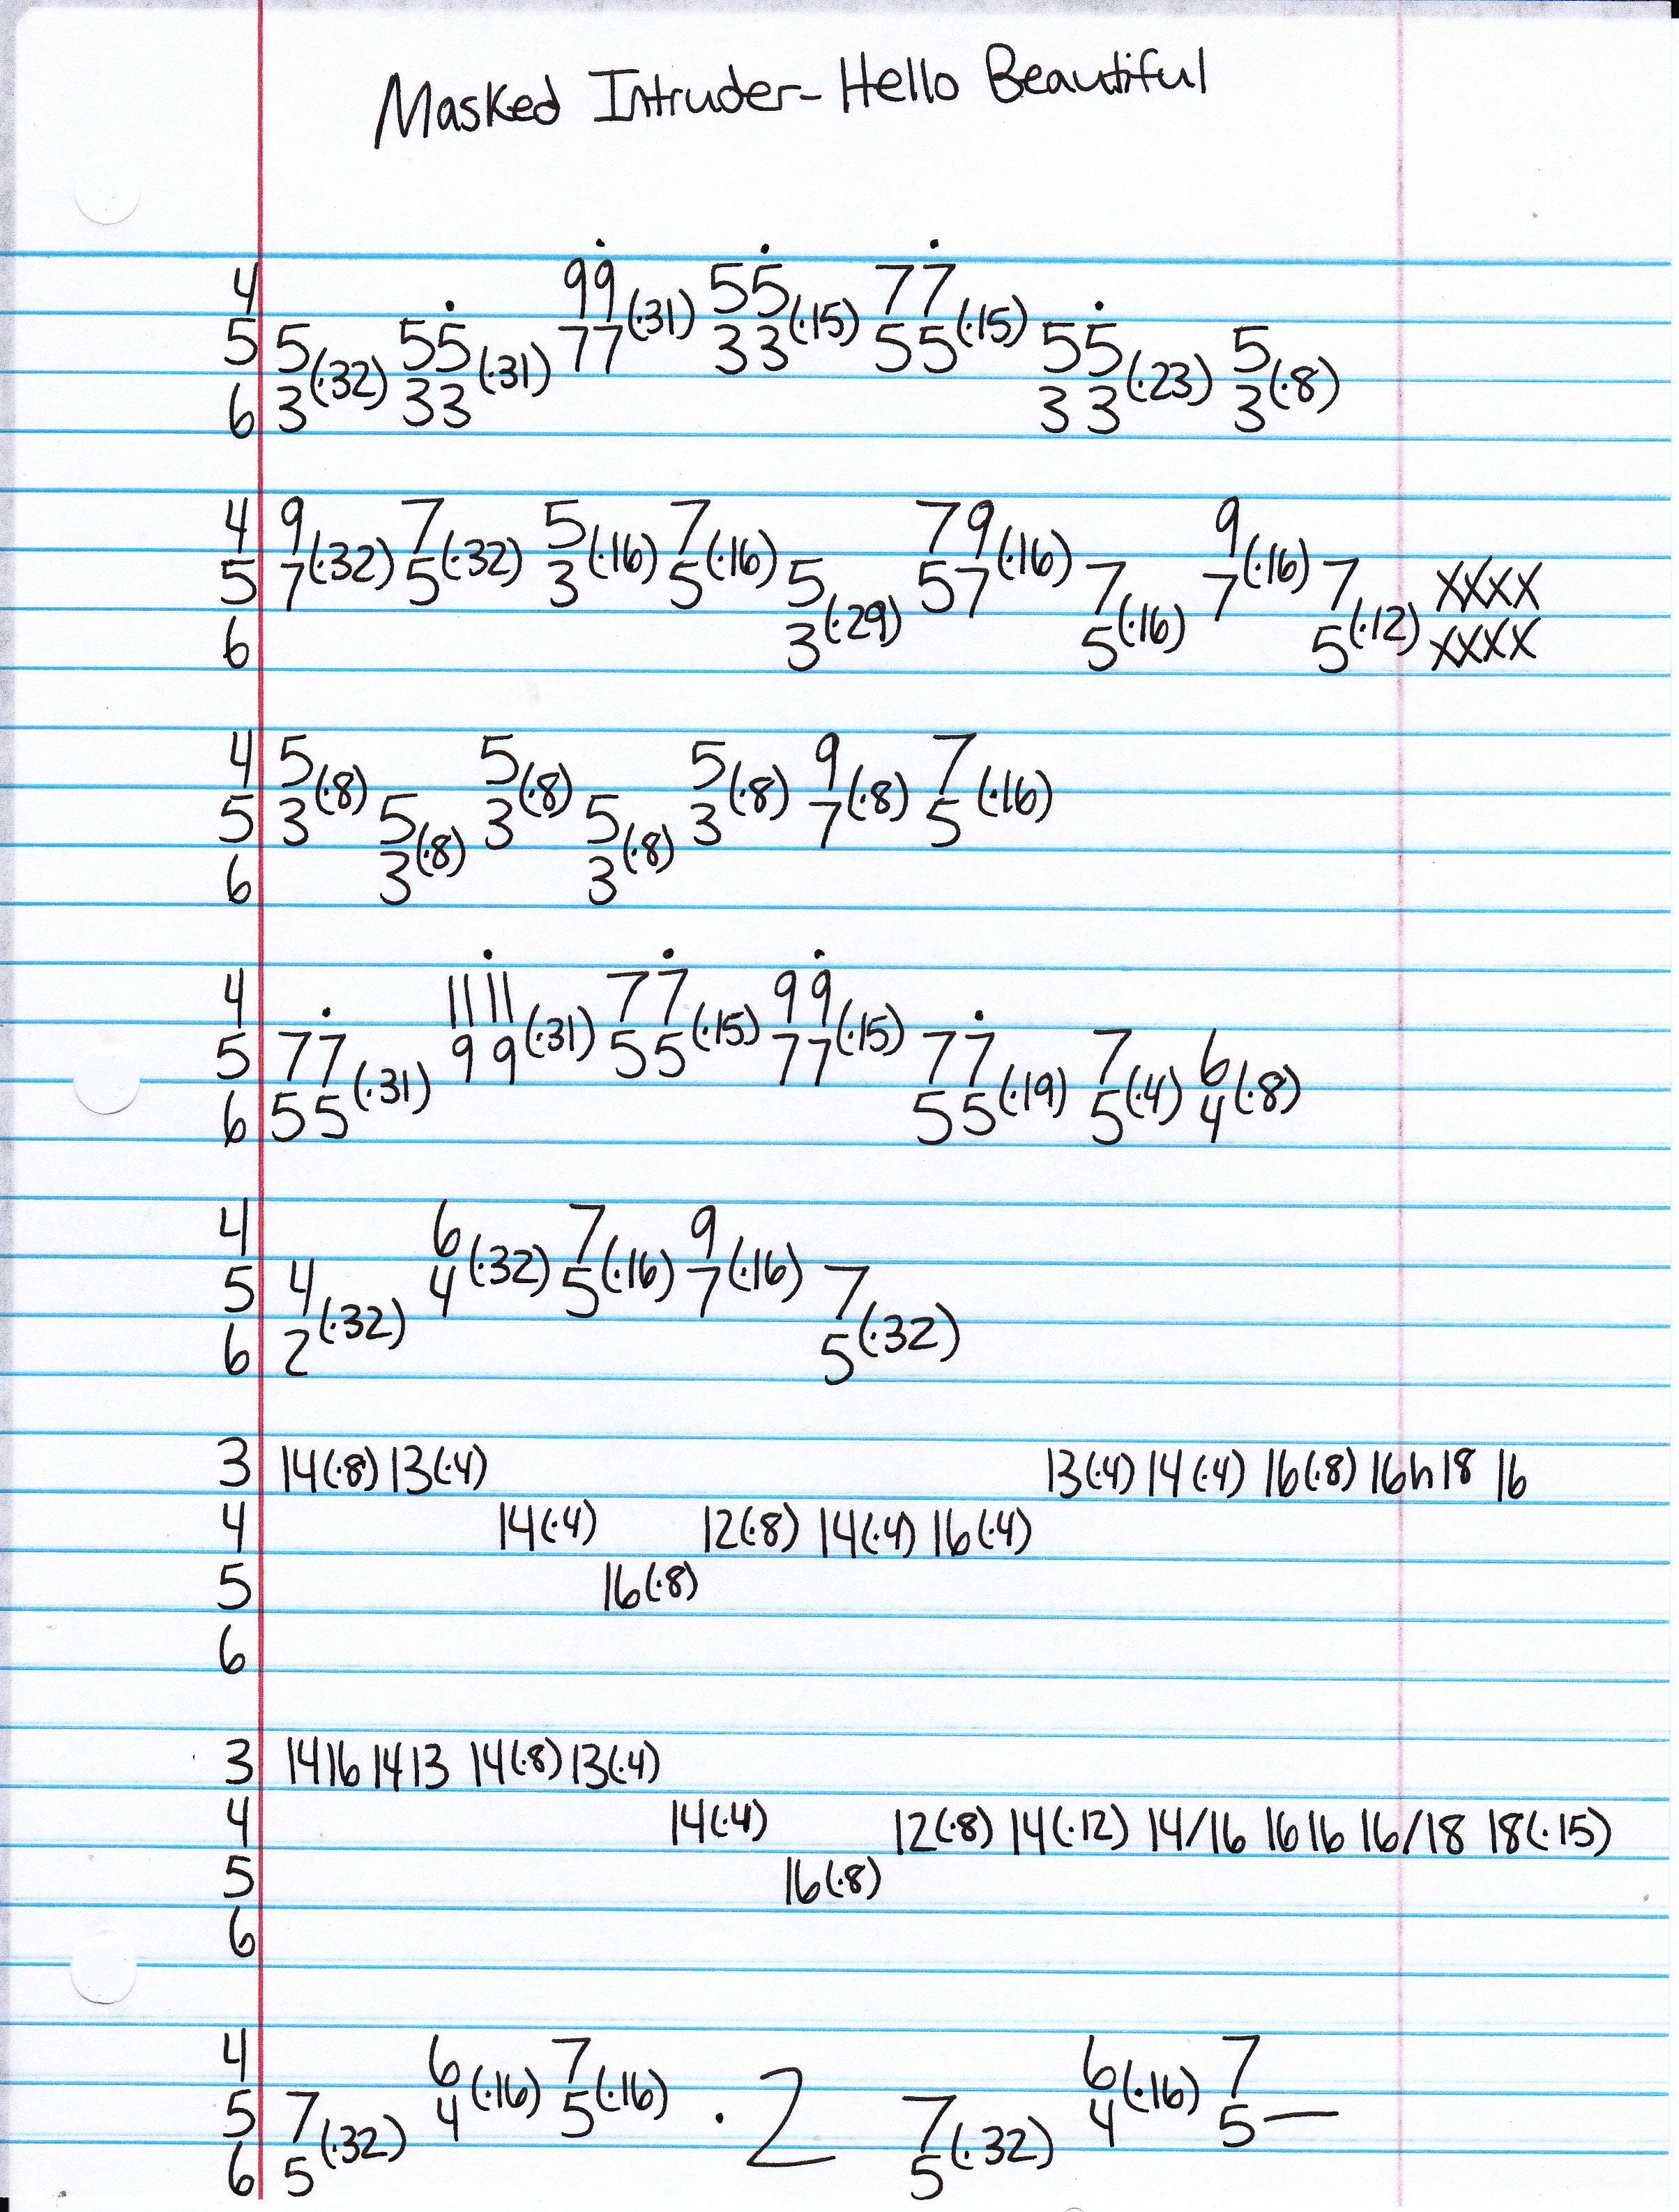 Masked Intruder- Hello Beautiful
4 99 55 77
5 5(·32) 55(·31) 77(·31) 33(·15) 55(·15) 55(·23) 5(·8)
6 3 33 33 3
4 9 7 5 7 79 9
5 7(·32) 5(·32) 3(·16) 5(·16) 5 57(·16) 7 7(·16) 7 XXXX
6 3(·29) 5(·16) 5(·12) XXXX
4 5 5 5 9 7
5 3(·8) 5 3(·8) 5 3(·8) 7(·8) 5(·16)
6 3(·8) 3(·8)
4 1111 77 99
5 77 99(·31) 55(·15) 77(·15) 77 7 6
6 55(·31) 55(·19) 5(·4) 4(·8)
4 6 7 9
5 4 4(·32) 5(·16) 7(·16) 7
6 2(·32) 5(·32)
3 14(·8) 13(·4) 13(·4) 14(·4) 16(·8) 16h18 16
4 14(·4) 12(·8) 14(·4) 16(·4)
5 16(·8)
6
3 14 16 14 13 14(·8) 13(·4)
4 14(·4) 12(·8) 14(·12) 14/16 16 16 16/18 18(·15)
5 16(·8)
6
4 6 7 6 7
5 7 4(·16) 5(·16) ·2 7 4(·16) 5—
6 5(·32) 5(·32)